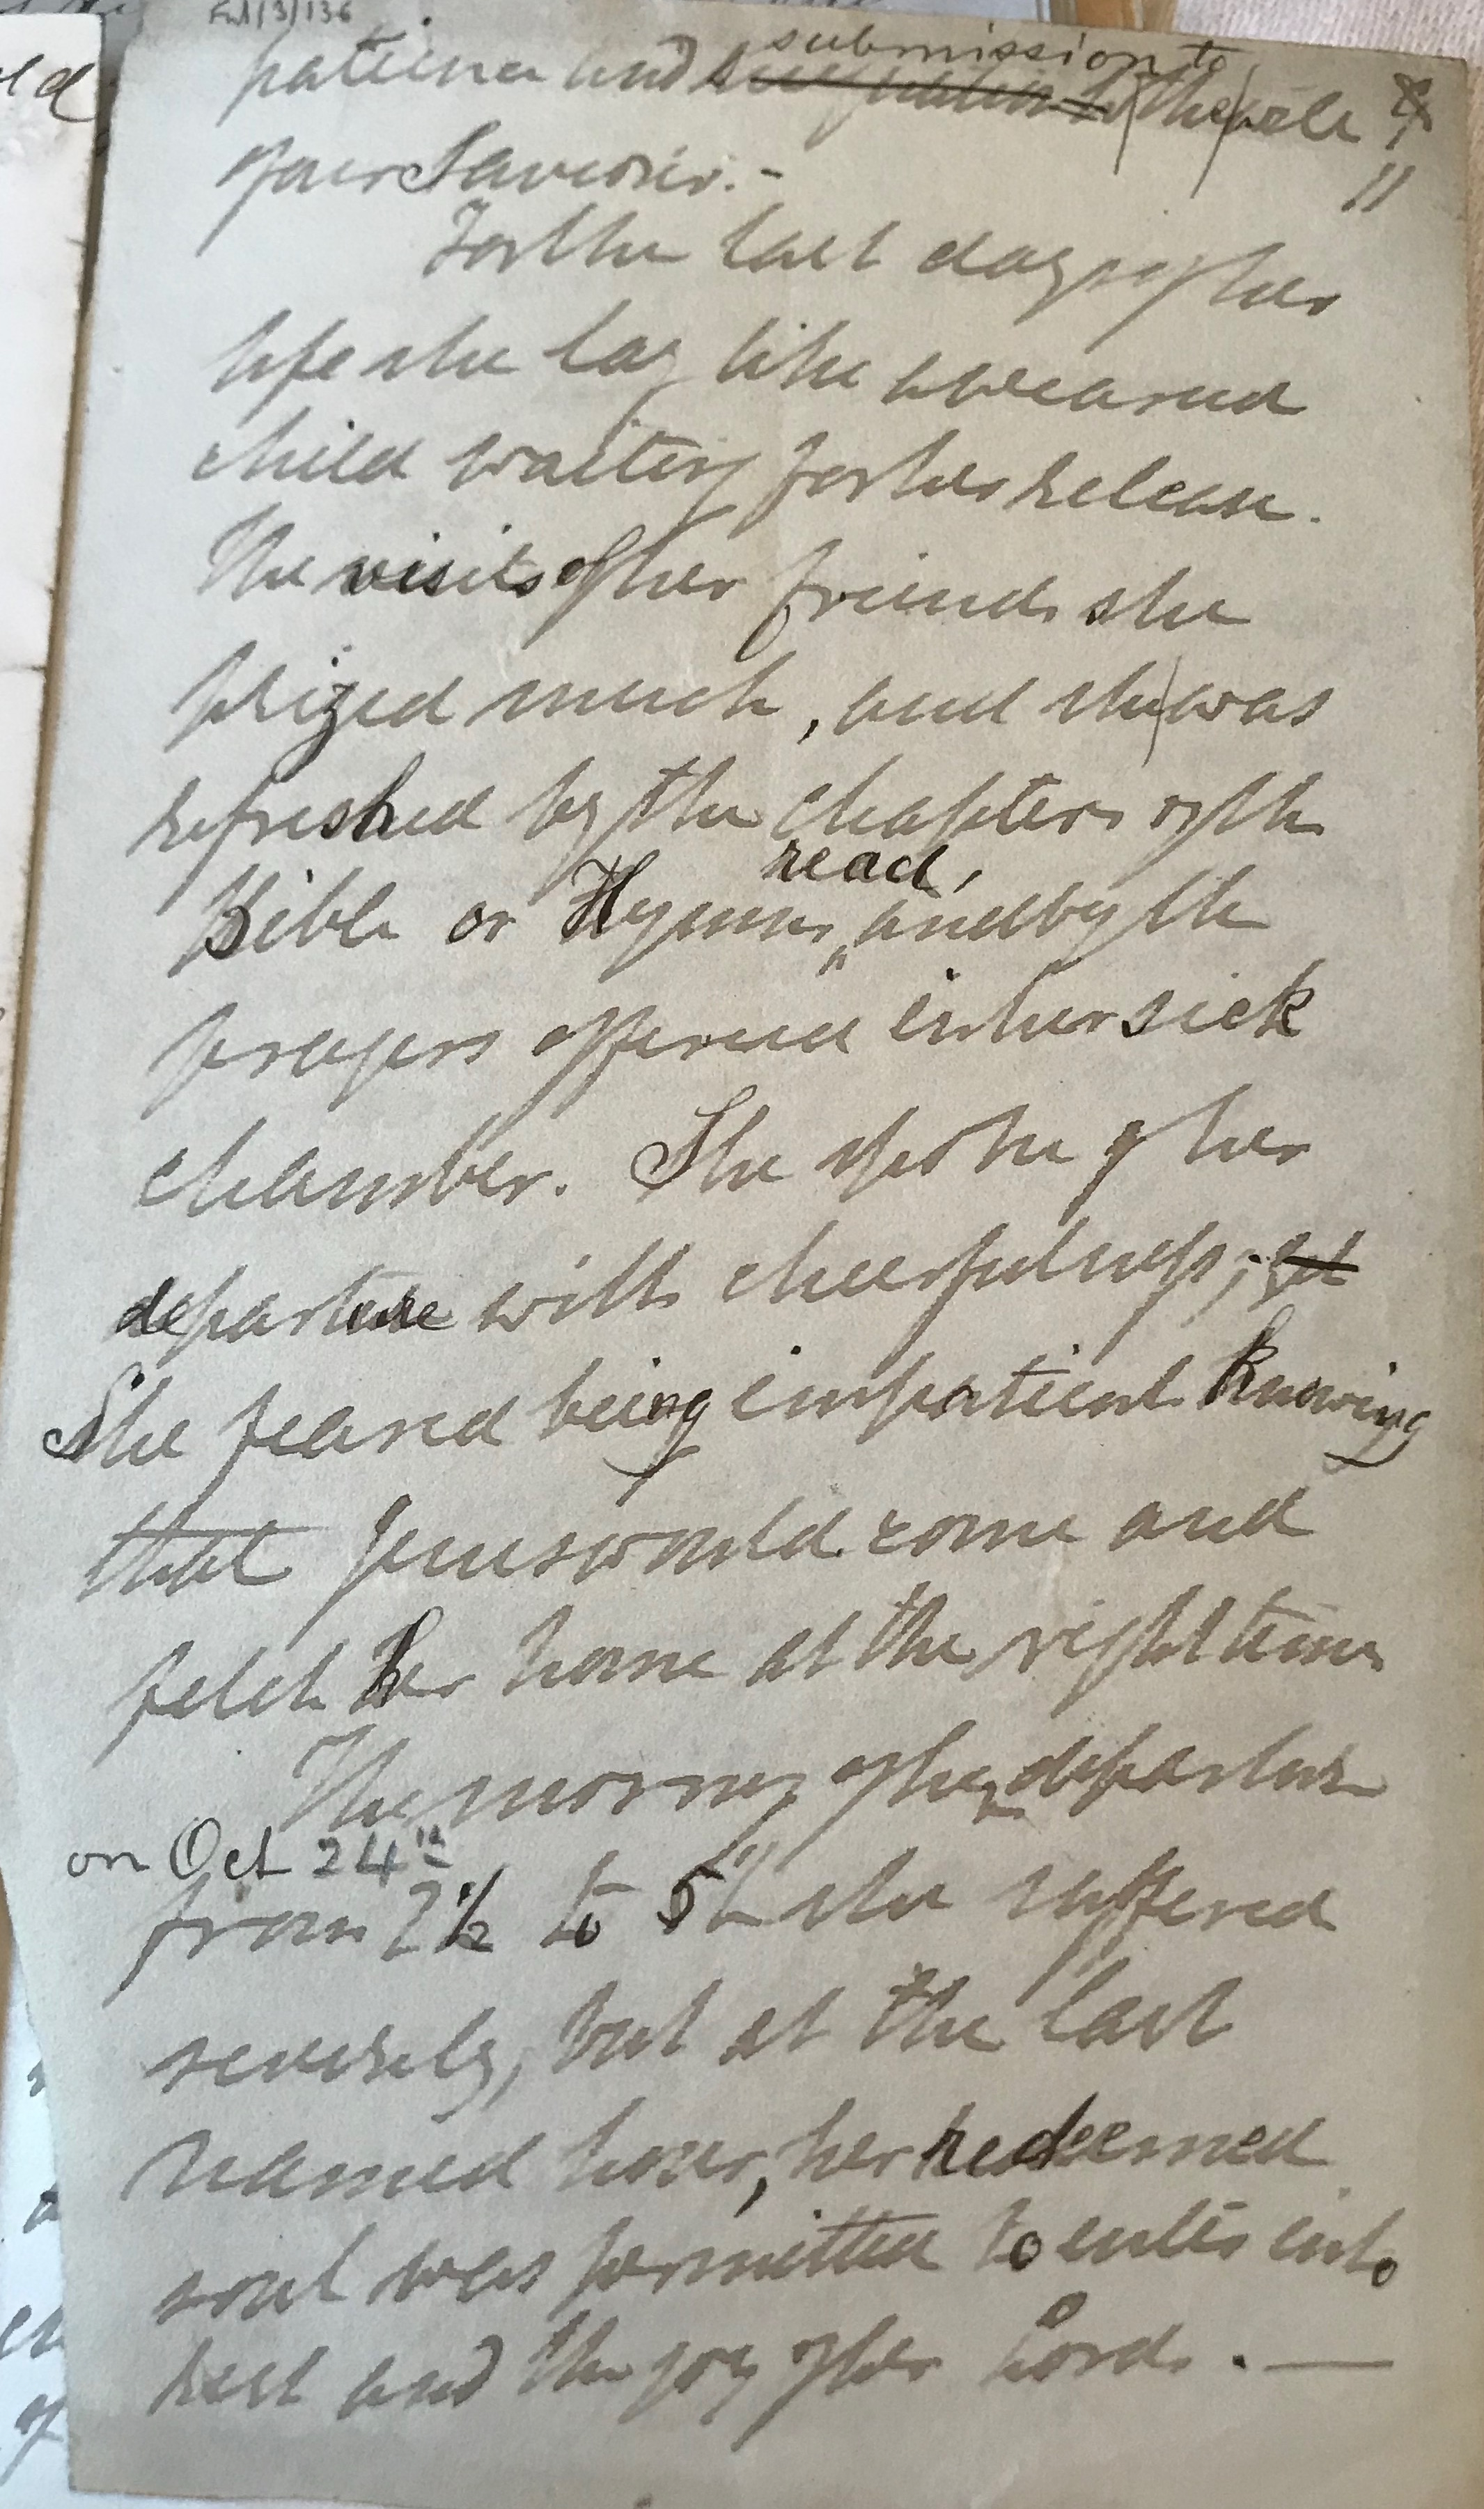 Ful/3/136
submission to
patience and resignation to the will
8
of our Saviour. -
11
For the last days of her
life she lay like a wearied
child waiting for her release.
The visits of her friends she
prized much, and she was
refreshed by the chapters of the
read,
Bible or Hymns, and by the
prayers offered in her sick
chamber. She spoke of her
departure with cheerfulness; yet
She feared being impatient knowing
that Jesus would come and
fetch her home at the right time
The morning of her departure
on Oct 24th
from 2½ to 5½ she suffered
severely, but at the last
named hour, her redeemed
soul was permitted to enter into
rest and the joy of her Lord. . —